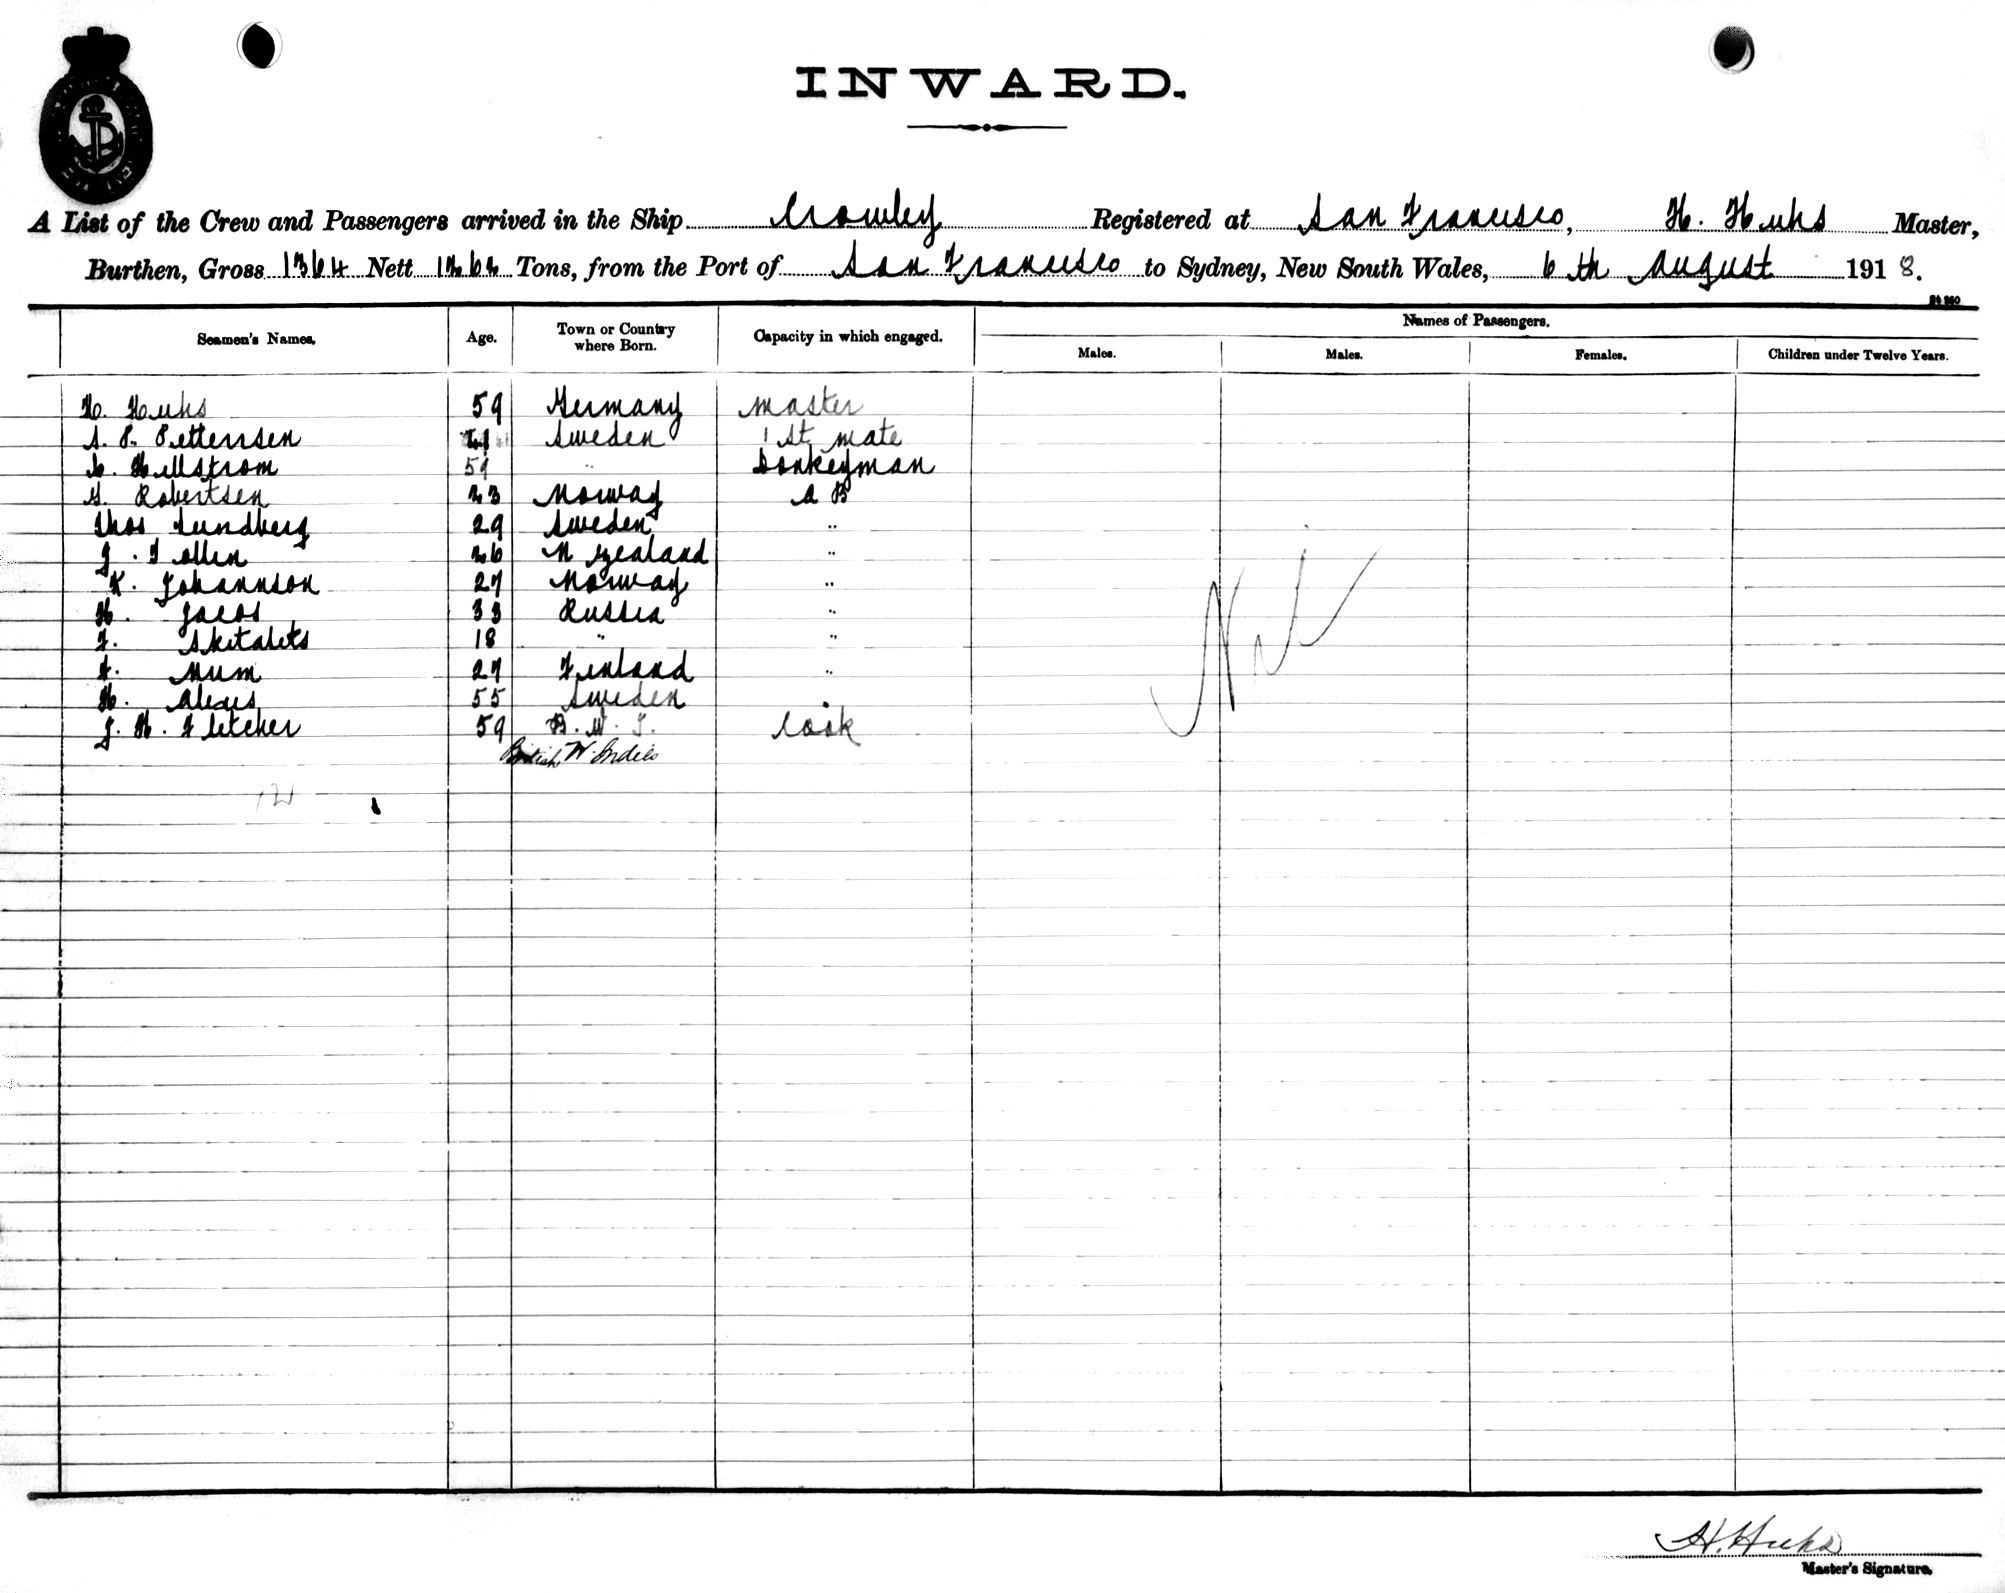 INWARD.
A List of the Crew and Passengers arrived in the Ship Crowley Registered at San Francisco, H. Huhs Master,
Burthen, Gross 1364 Nett 1262 Tons, from the Port of San Francisco to Sydney, New South Wales, 6th August 1918.
Names of Passengers.
Seamen's Names. Age. Town or Country where Born. Capacity in which engaged. Males. Males. Females. Children under Twelve Years.
H. Huhs 59 Germany Master
A. P. Pettersen Sweden 1st Mate
C. Hellstrom 59 " Donkeyman
G. Robertsen 23 Norway A B
Thos Lundberg 29 Sweden "
J. Tollin 26 N Zealand "
K. Johannson 27 Norway "
H. Jacos 33 Russia "
F. Skitalets 18 " "
A. Mum 27 Finland "
H. Alexis 55 Sweden
J. H. Fletcher 59 B. W. I. Cook
British W. Indies
Nil
12
H. Huhs
Master's Signature.